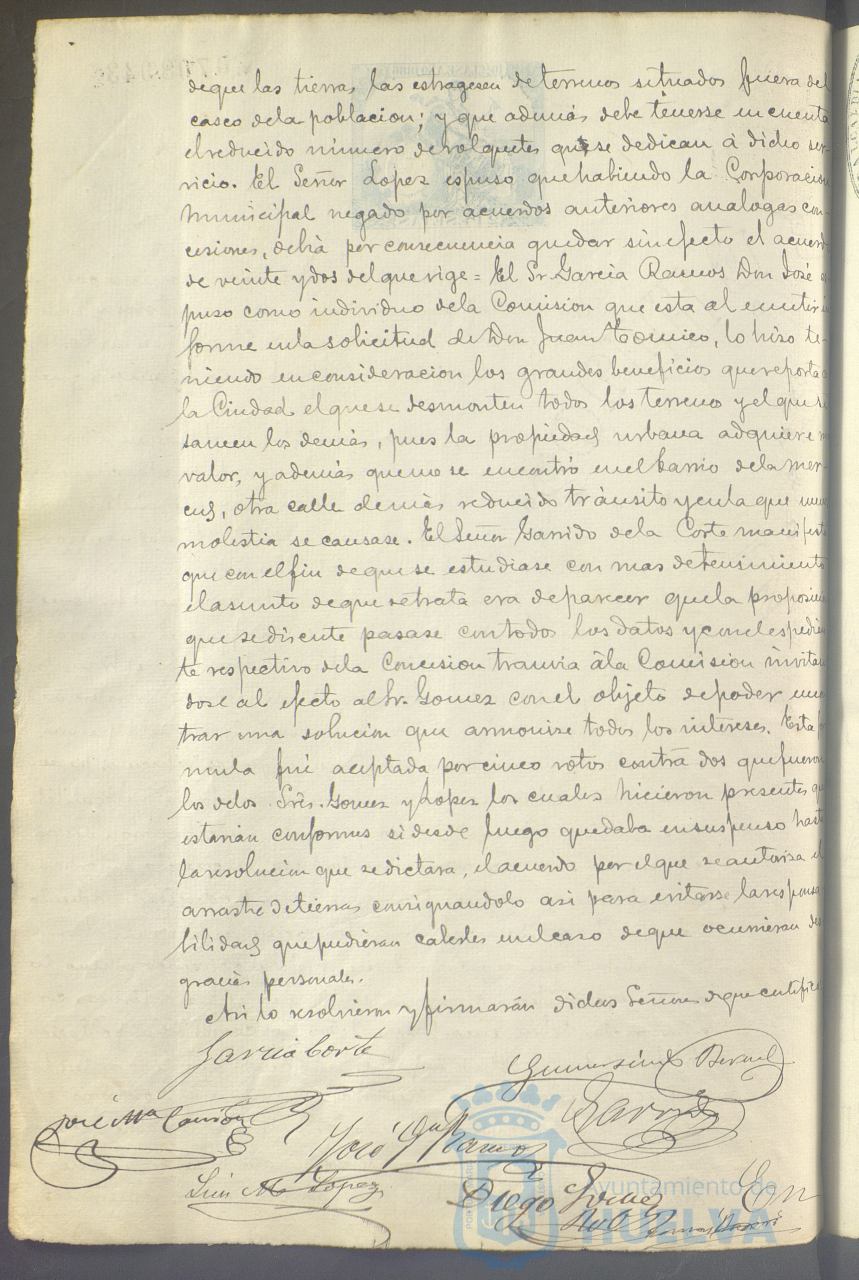 deque las tierras las estragesen de terrenos situados fuera del
casco dela poblacion; y que además debe tenerse en cuenta
el reducido número de volquetes que se dedican á dicho ser-
vicio. El Señor Lopez espuso que habiendo la Corporacion
Municipal negado por acuerdos anteriores analogas con-
cesiones, debia por consecuencia quedar sin efecto el acuerdo
de veinte y dos del que rige = El Sr. Garcia Ramos Don José es
puso como individuo dela Comision que esta al emitir in
forme en la solicitud de Don Juan, lo hizo te-
niendo en consideracion los grandes beneficios que reporta á
la Ciudad el que se desmonten todos los terreno y el que se
saneen los demás, pues la propiedad urbana adquiere
valor, y además que no se encontró en el barrio dela mer-
ced, otra calle de más reducido tránsito y en la que menos
molestia se causase. El Señor Garrido dela Corte manifestó
que con el fin de que se estudiase con mas detenimiento
el asunto de que se trata era de parecer que la proposicion
que se discute pasase con todos los datos y con el espedien
te respectivo dela Concesion tranvia á la Comision invitan
dose al efecto al Sr. Gomez con el objeto de poder encon
trar una solucion que armonise todos los intereses. Esta for
mula fué aceptada por cinco votos contra dos que fueron
los delos Sres. Gomez y Lopez los cuales hicieron presente que
estarian conformes si desde luego quedaba en suspenso hasta
la resolucion que se dictara, el acuerdo por el que se autoriza el
arrastre de tierras consignandolo asi para evitarse la responsa
bilidad que pudieran caberles en el caso de que ocurrieran des
gracias personales.
Asi lo resolvieron y firmarán dichos Señores de que certifico
Garcia Corte
Gumersindo Bernal
José Ma
Garrido
José Ga Ramos
Luis M Lopez
Diego Gomez
Ayuntamiento de
HUELVA